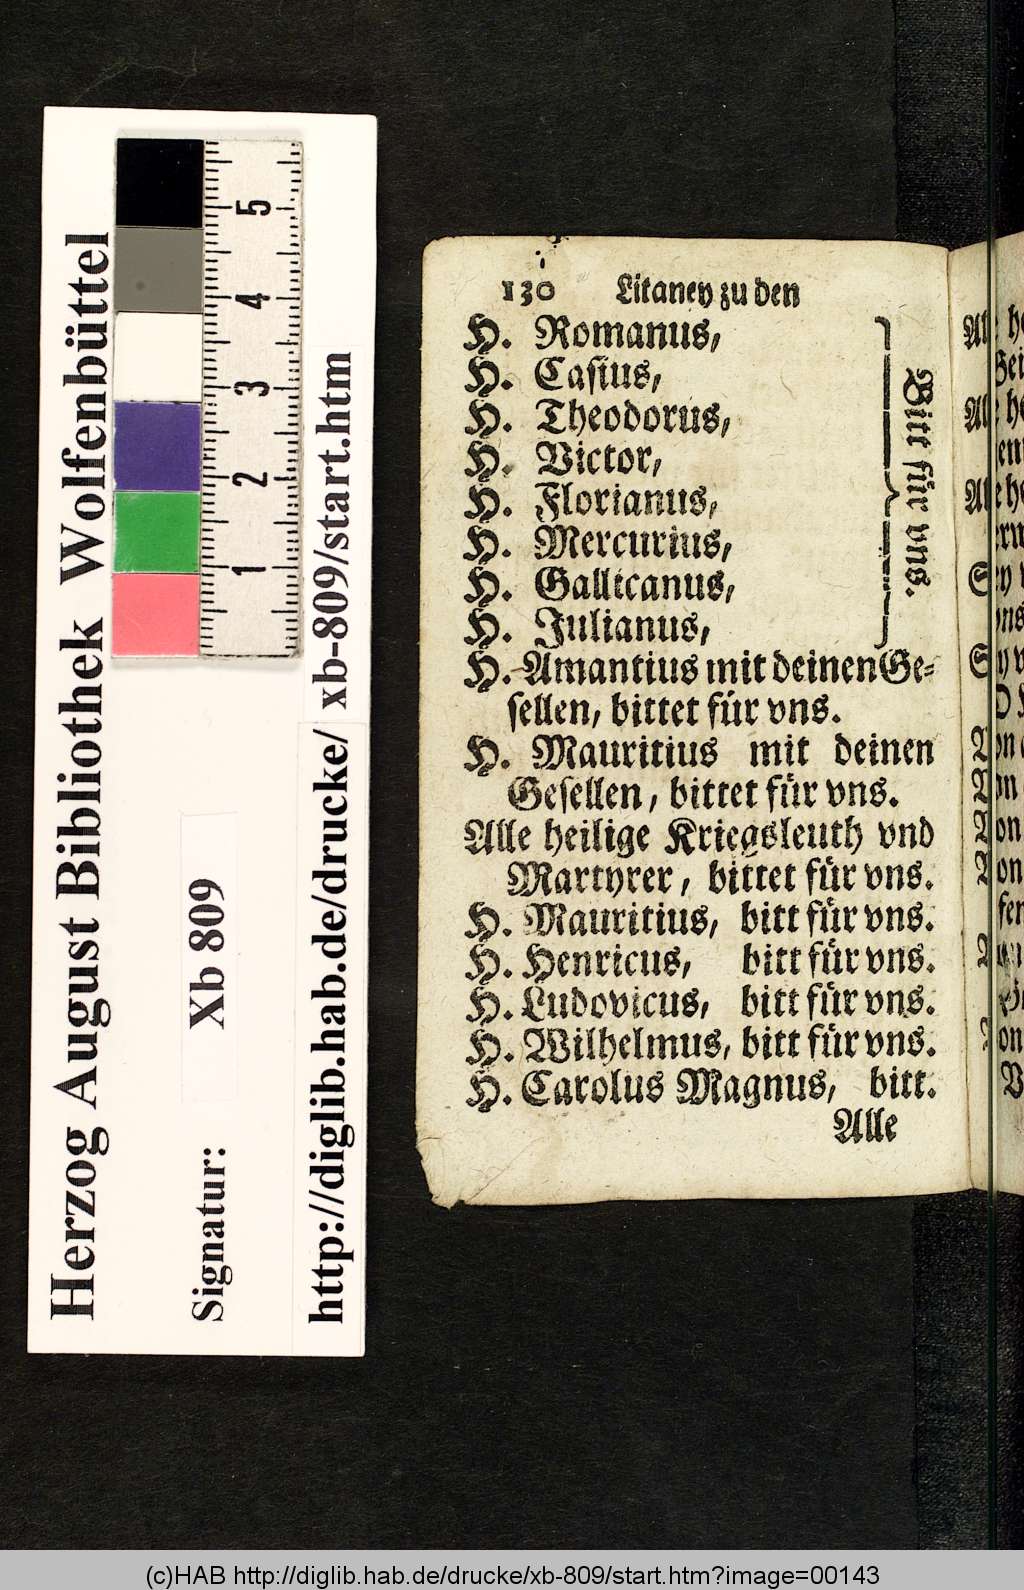 Herzog August Bibliothek Wolfenbüttel
Signatur: Xb 809
http://diglib.hab.de/drucke/ xb-809/start.htm
5
4
3
2
1
130 Litaney zu den
H. Romanus,
H. Casius,
H. Theodorus,
H. Victor,
H. Florianus,
H. Mercurius,
H. Gallicanus,
H. Julianus,
Bitt für vns.
H. Amantius mit deinen Ge-
sellen, bittet für vns.
H. Mauritius mit deinen
Gesellen, bittet für vns.
Alle heilige Kriegsleuth vnd
Martyrer, bittet für vns.
H. Mauritius, bitt für vns.
H. Henricus, bitt für vns.
H. Ludovicus, bitt für vns.
H. Wilhelmus, bitt für vns.
H. Carolus Magnus, bitt.
Alle
(c)HAB http://diglib.hab.de/drucke/xb-809/start.htm?image=00143